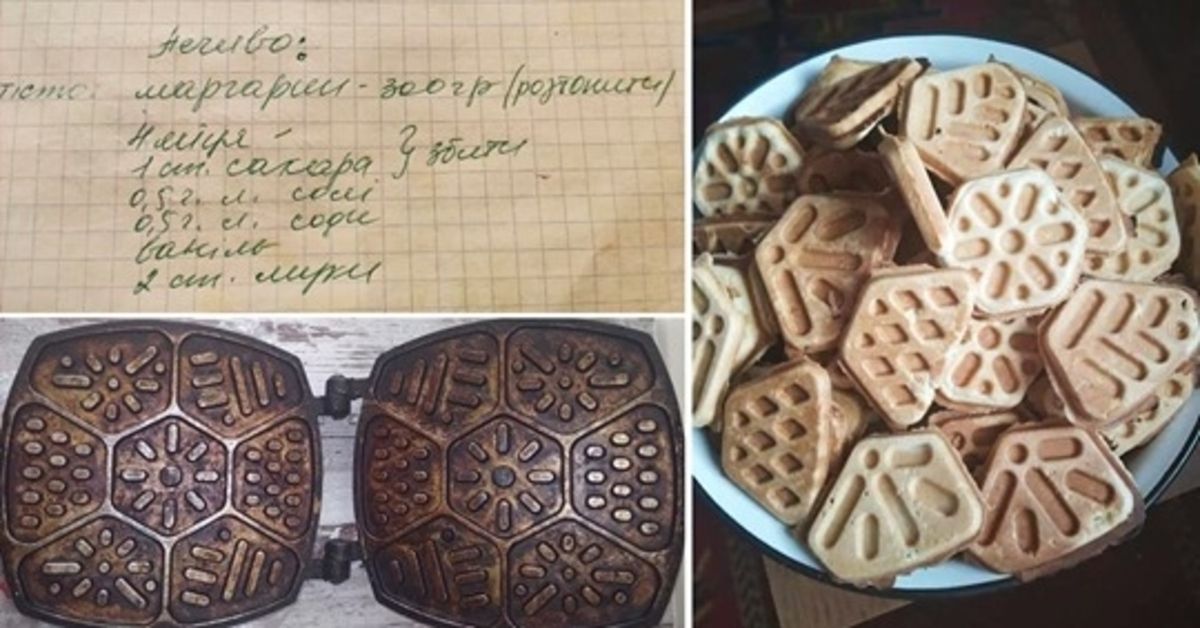 Печиво:
тісто: маргарин - 300гр (розтопити)
4 яйця -
1 ст. сахара } збити
0,5 г. л. солі
0,5 г. л. соди
ваніль
2 ст. муки